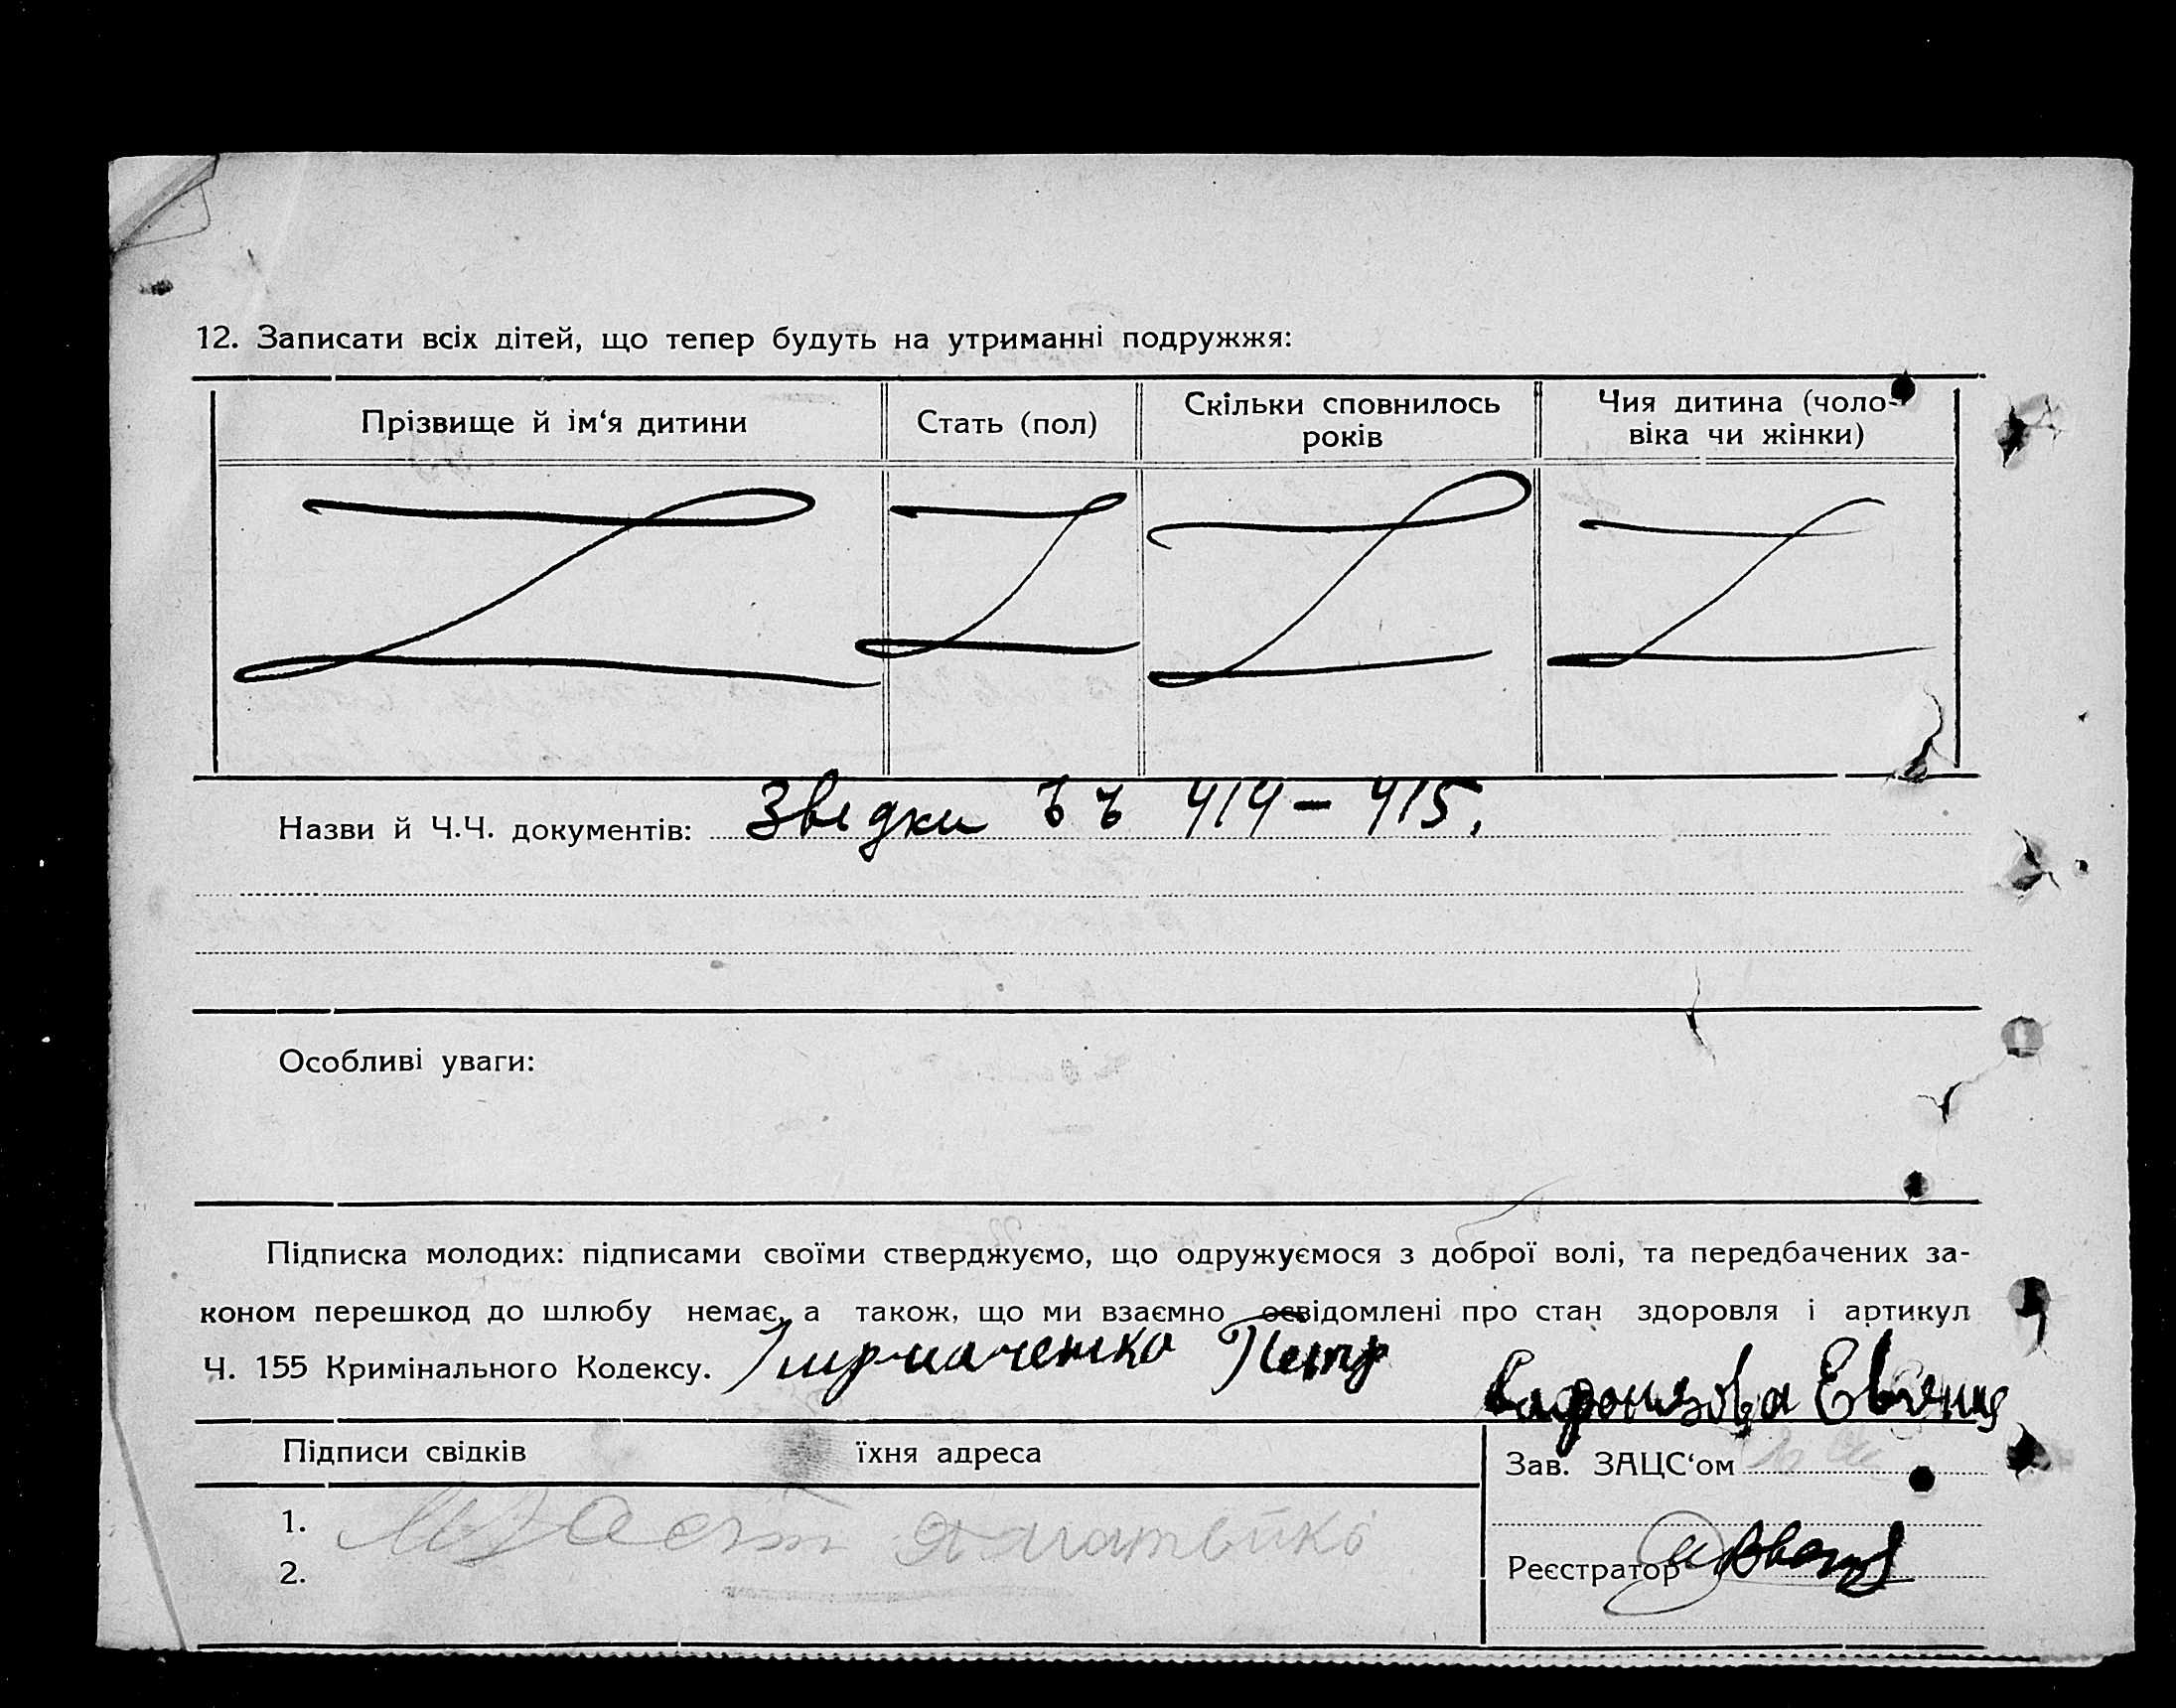 12. Записати всіх дітей, що тепер будуть на утриманні подружжя:
Прізвище й ім‘я дитини
Стать (пол)
Скільки сповнилось
років
Чия дитина (чоло-
віка чи жінки)
Назви й Ч.Ч. документів: Звідки 414 – 415.
Особливі уваги:
Підписка молодих: підписами своїми стверджуємо, що одружуємося з доброї волі, та передбачених за-
коном перешкод до шлюбу немає, а також, що ми взаємно освідомлені про стан здоровля і артикул
Ч. 155 Кримінального Кодексу. Петр
Підписи свідків їхня адреса
Зав. ЗАЦС‘ом
1.
2.
Реєстратор